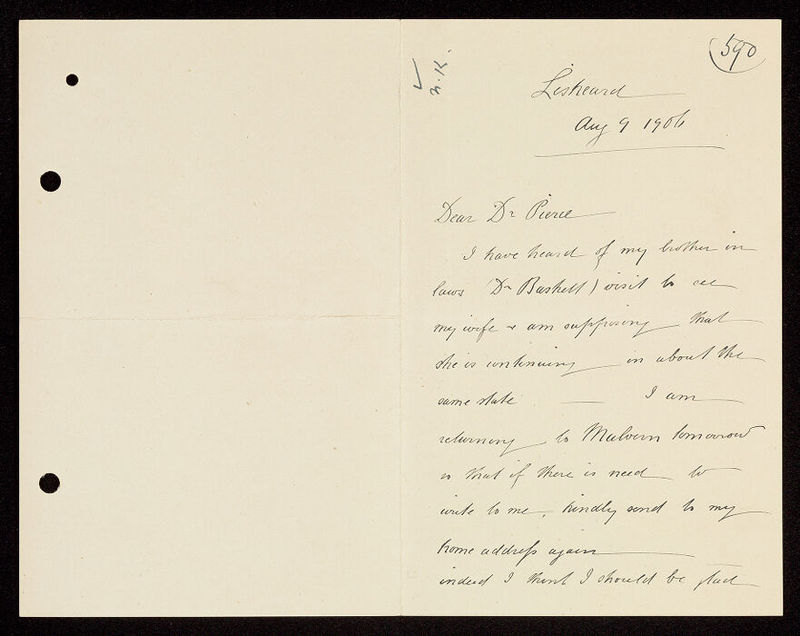 590
Liskeard
Aug 9 1906
Dear Dr Pierce
I have heard of my brother in
laws (Dr Baskett) visit to see
my wife & am supposing that
she is continuing in about the
same state — I am
returning to Malvern tomorrow
so that if there is need to
write to me, kindly send to my
home address again
indeed I think I should be glad